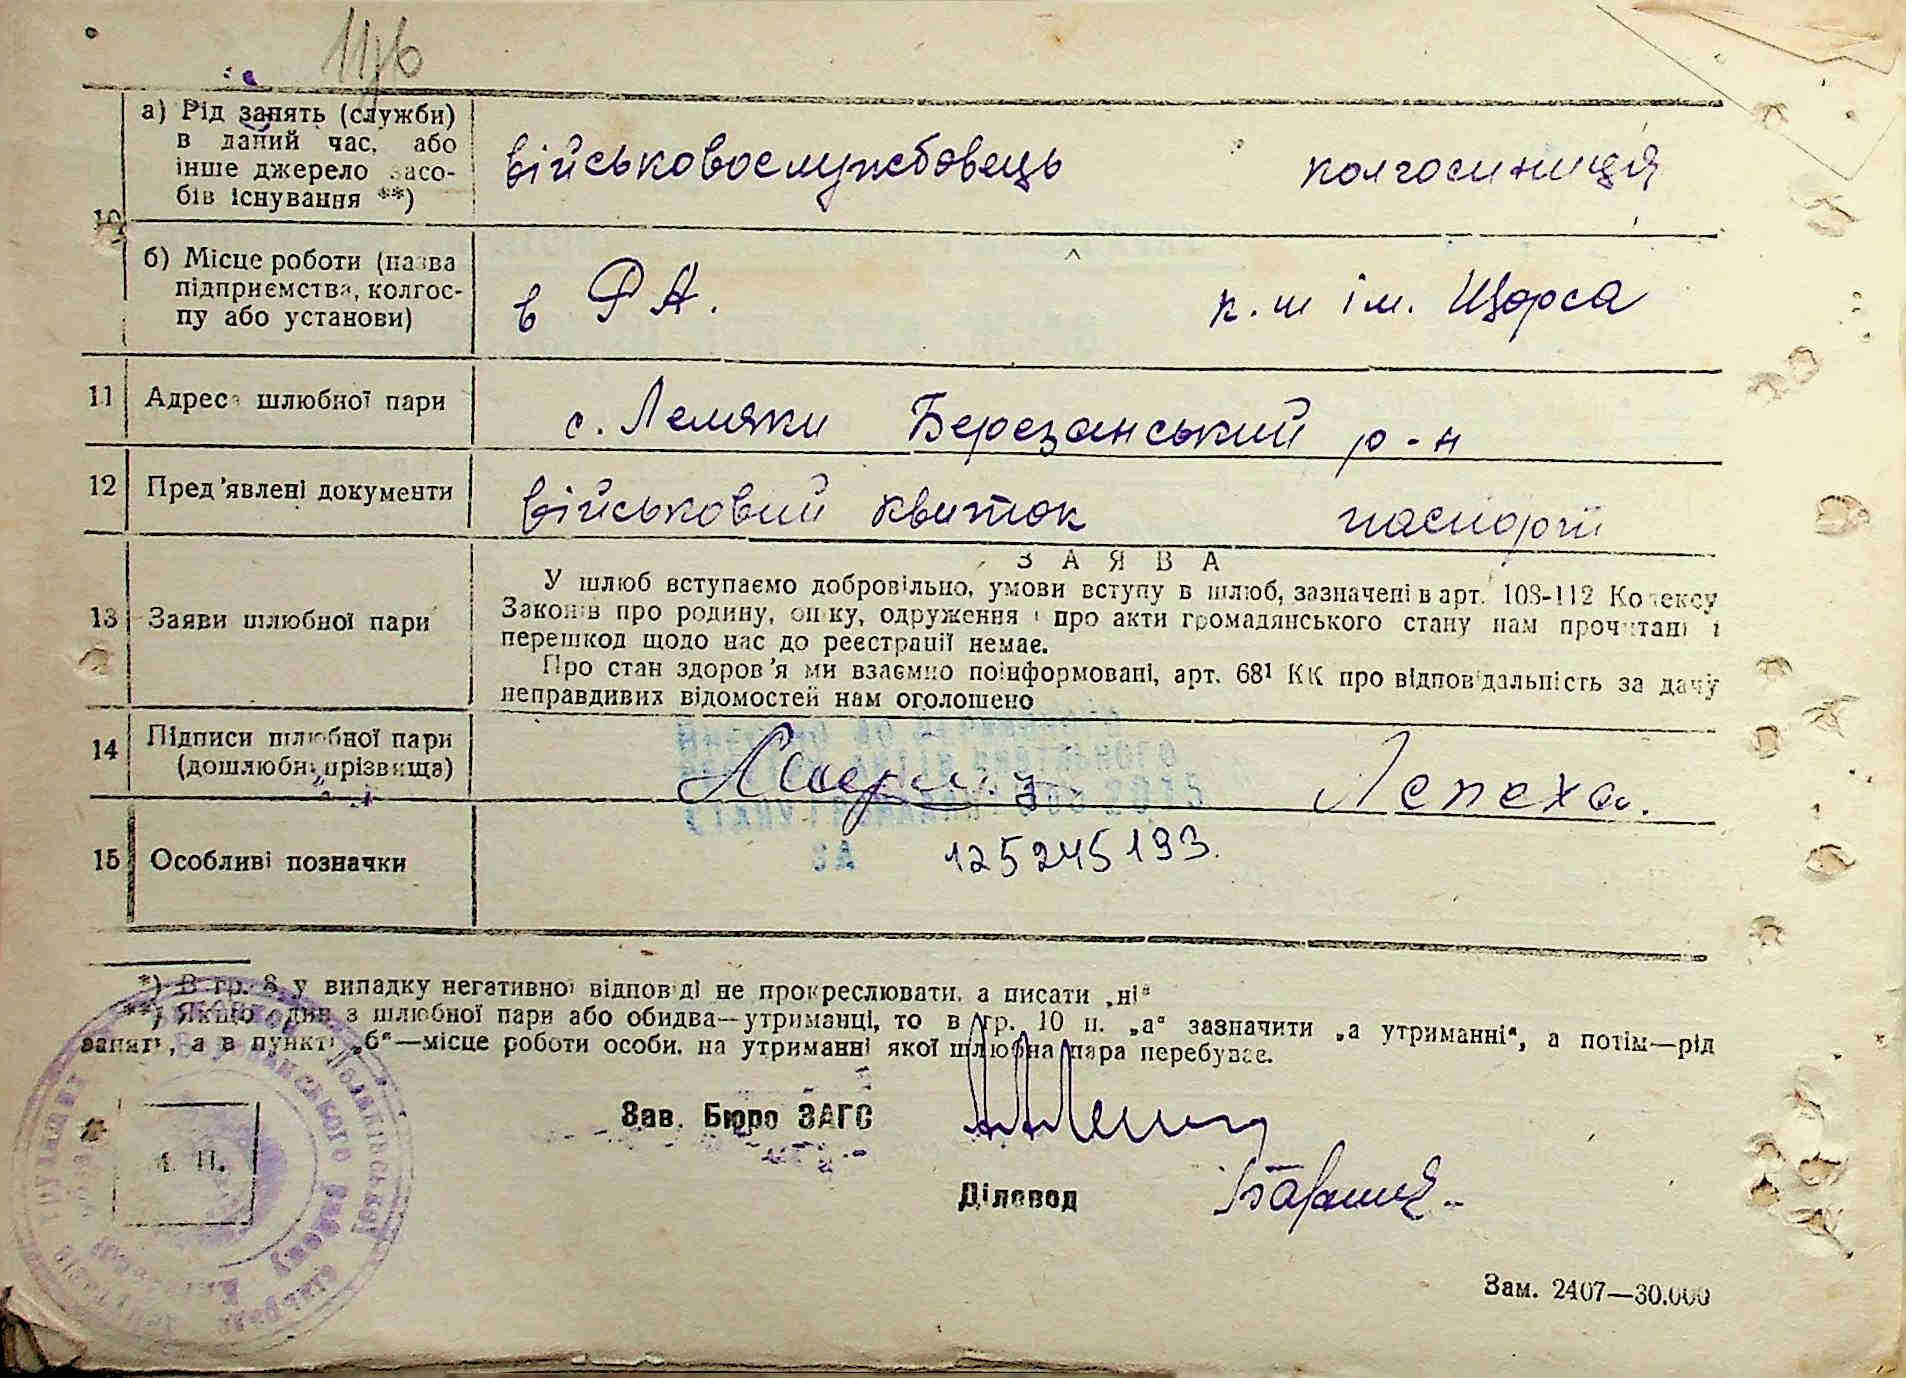 11/6
10
а) Рід занять (служби)
в даний час, або
інше джерело засо-
бів існування **)
військовослужбовець колгоспниця
б) Місце роботи (назва
підприємства, колгос-
пу або установи)
в РА. к. ім. Щорса
11 Адреса шлюбної пари
с. Лемяки Березанський р-н
12 Пред'явлені документи
військовий квиток паспорт
13 Заяви шлюбної пари
ЗАЯВА
У шлюб вступаємо добровільно, умови вступу в шлюб, зазначені в арт. 108-112 Кодексу
Законів про родину, опіку, одруження і про акти громадянського стану нам прочитані і
перешкод щодо нас до реєстрації немає.
Про стан здоров'я ми взаємно поінформовані, арт. 68¹ КК про відповідальність за дачу
неправдивих відомостей нам оголошено
14 Підписи шлюбної пари
(дошлюбні прізвища)
Лепеха.
15 Особливі позначки
125245193.
*) В гр. 8 у випадку негативної відповіді не прокреслювати, а писати „ні“
**) Якщо один з шлюбної пари або обидва—утриманці, то в гр. 10 п. „а“ зазначити „а утриманні“, а потім—рід
занять, а в пункті „б“—місце роботи особи, на утриманні якої шлюбна пара перебуває.
Зав. Бюро ЗАГС
М. П.
Діловод
Зам. 2407—30.000